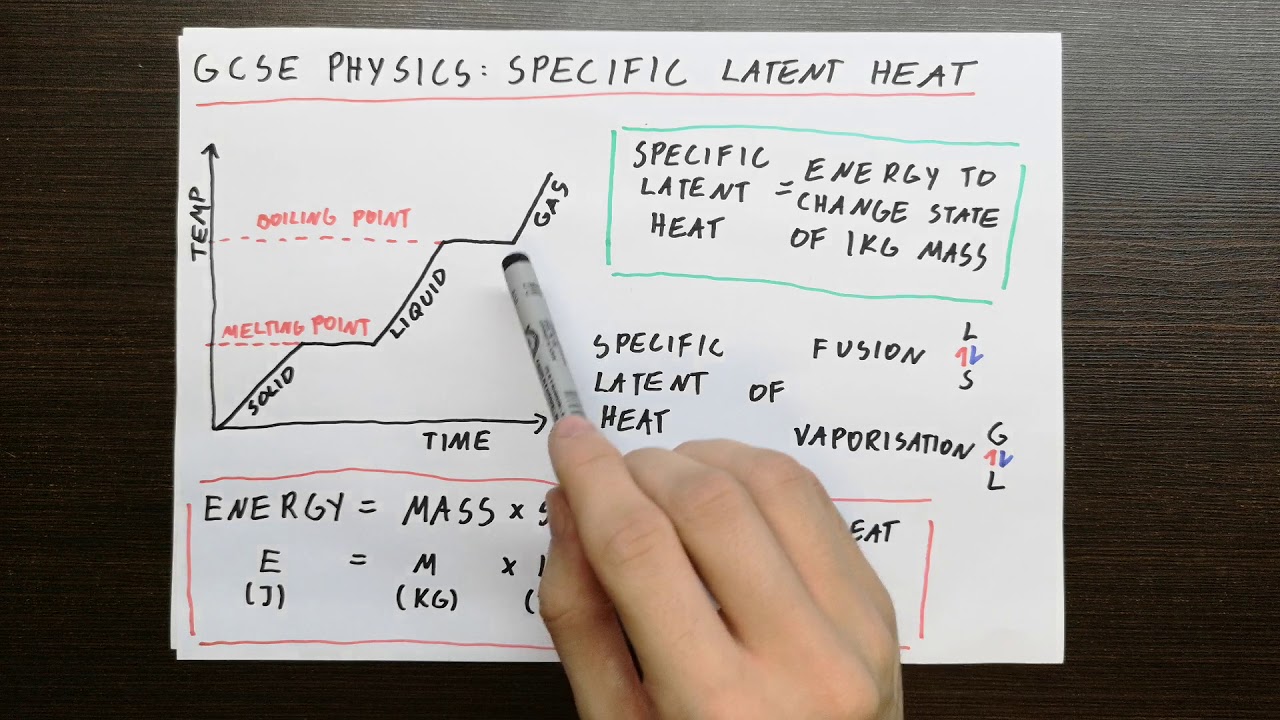 GCSE PHYSICS: SPECIFIC LATENT HEAT
TEMP
BOILING POINT
MELTING POINT
SOLID
LIQUID
GAS
TIME
SPECIFIC
LATENT
HEAT
=
ENERGY TO
CHANGE STATE
OF 1KG MASS
SPECIFIC
LATENT
HEAT
OF
FUSION
L
↑↓
S
VAPORISATION
G
↑↓
L
ENERGY = MASS × S
EAT
E = M ×
(J) (KG) (